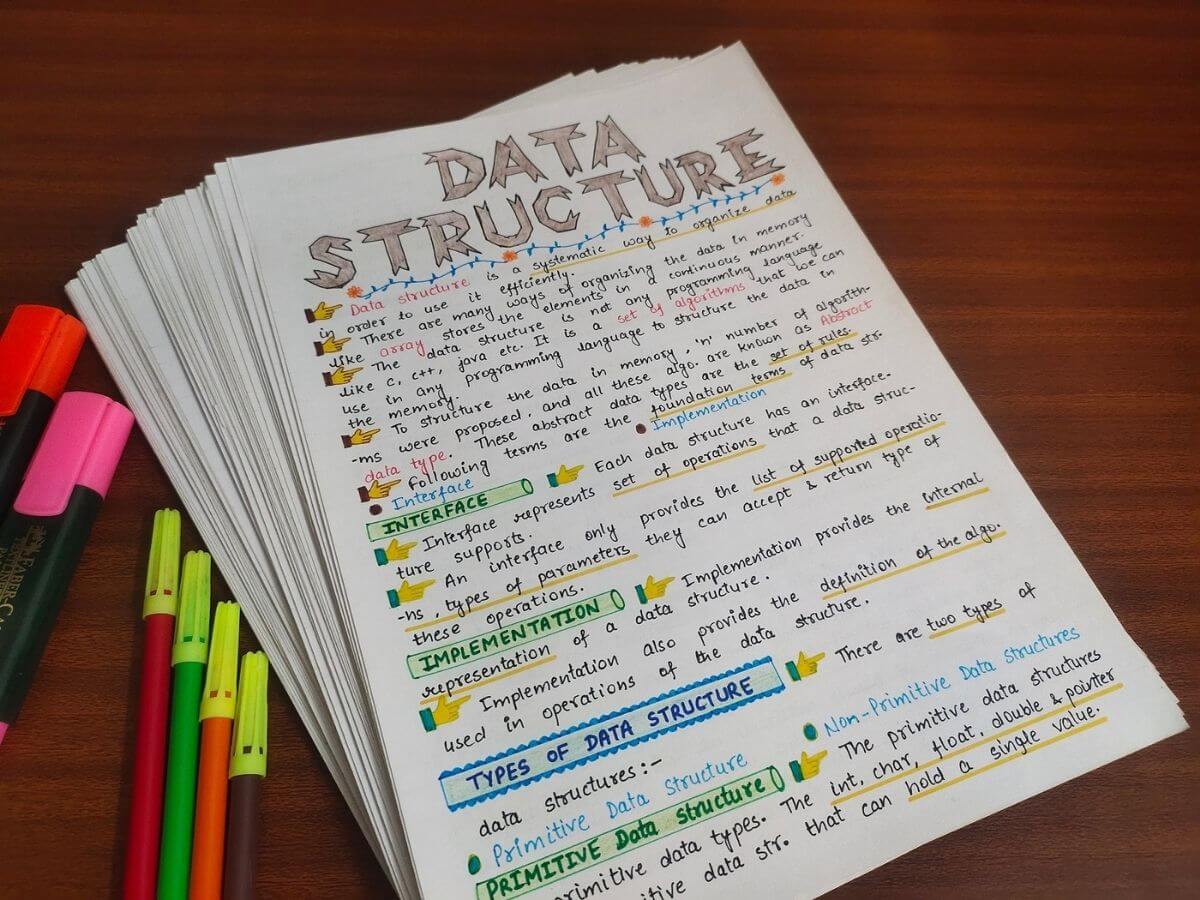 DATA
STRUCTURE
Data structure is a systematic way to organize data
in order to use it efficiently.
There are many ways of organizing the data in memory
like array stores the elements in a continuous manner.
The data structure is not any programming language
like C, C++, java etc. It is a set of algorithms that we can
use in any programming language to structure the data in
the memory.
To structure the data in memory, 'n' number of algorith-
-ms were proposed, and all these algo. are known as Abstract
data type. These abstract data types are the set of rules.
Following terms are the foundation terms of data str.
Interface
Implementation
INTERFACE
Each data structure has an interface.
Interface represents set of operations that a data struc-
ture supports.
An interface only provides the list of supported operatio-
-ns, types of parameters they can accept & return type of
these operations.
IMPLEMENTATION
Implementation provides the internal
representation of a data structure.
Implementation also provides the definition of the algo.
used in operations of the data structure.
TYPES OF DATA STRUCTURE
There are two types of
data structures:-
Primitive Data structure
Non-Primitive Data Structures
PRIMITIVE Data Structure
The primitive data structures
primitive data types. The int, char, float, double & pointer
data str. that can hold a single value.